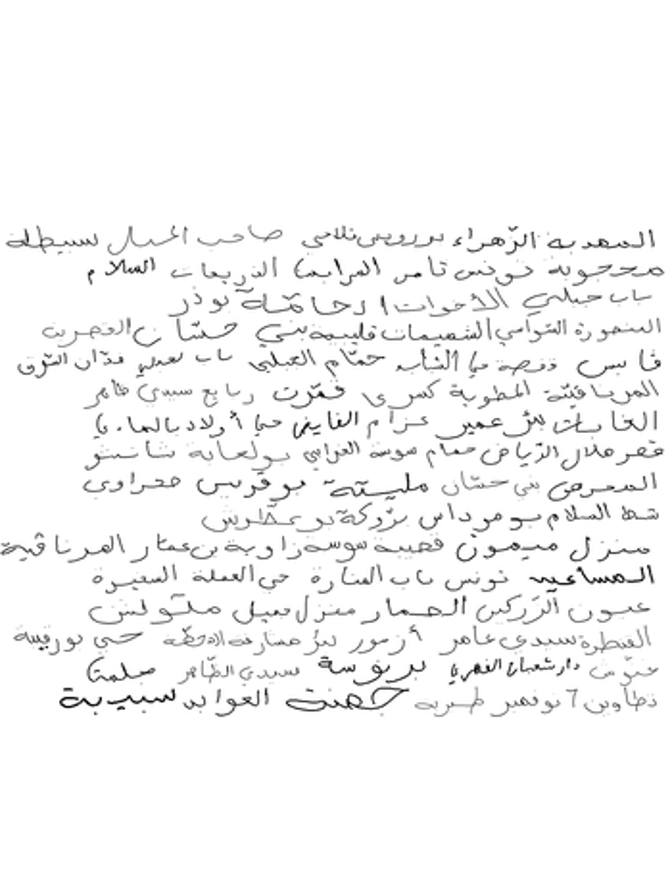 المهدية الزّهراء بورويس تلالسي صاحب الجبل سبيطلة
محجوبة تونس تامر المرابط الذريعات السلام
باب جبلي الأخوات رحاتمة نوذر
المنصورة القواسي الشعيمات قليبية بني حسّان القصرين
قابس قفصة حي الشباب حمّام الجبلي باب سعدون فدّان السّوق
المرناقيّة المطوية كسرى قمّرت ربايع سيدي ظاهر
الغابات بئر عمير عزّام الفايض حي أولاد بالهادي
قصر هلال الرّياض حمّام سوسة العوامي بولعابة شاشو
المعرض بني حسّان مليتة بوقرنين صحراوي
شط السلام بومرداس برّوكة بوعطّوش
منزل ميمون قصيبة سوسة زاوية بن عمّار المرناقية
المساعيد تونس باب المنارة حي العملة الصغيرة
عيون الزركين الحمار منزل جميل ملّولش
القنطرة سيدي عامر أزمور بئر مشارقة المحطّة حي بورقيبة
دار شعبان الفهري بريوسة سيدي الظّاهر سلمتا
تطاوين 7 نوفمبر طبربة جهنة العوابد سبيبة